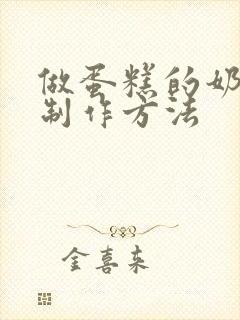 做蛋糕的奶
制作方法
金喜来